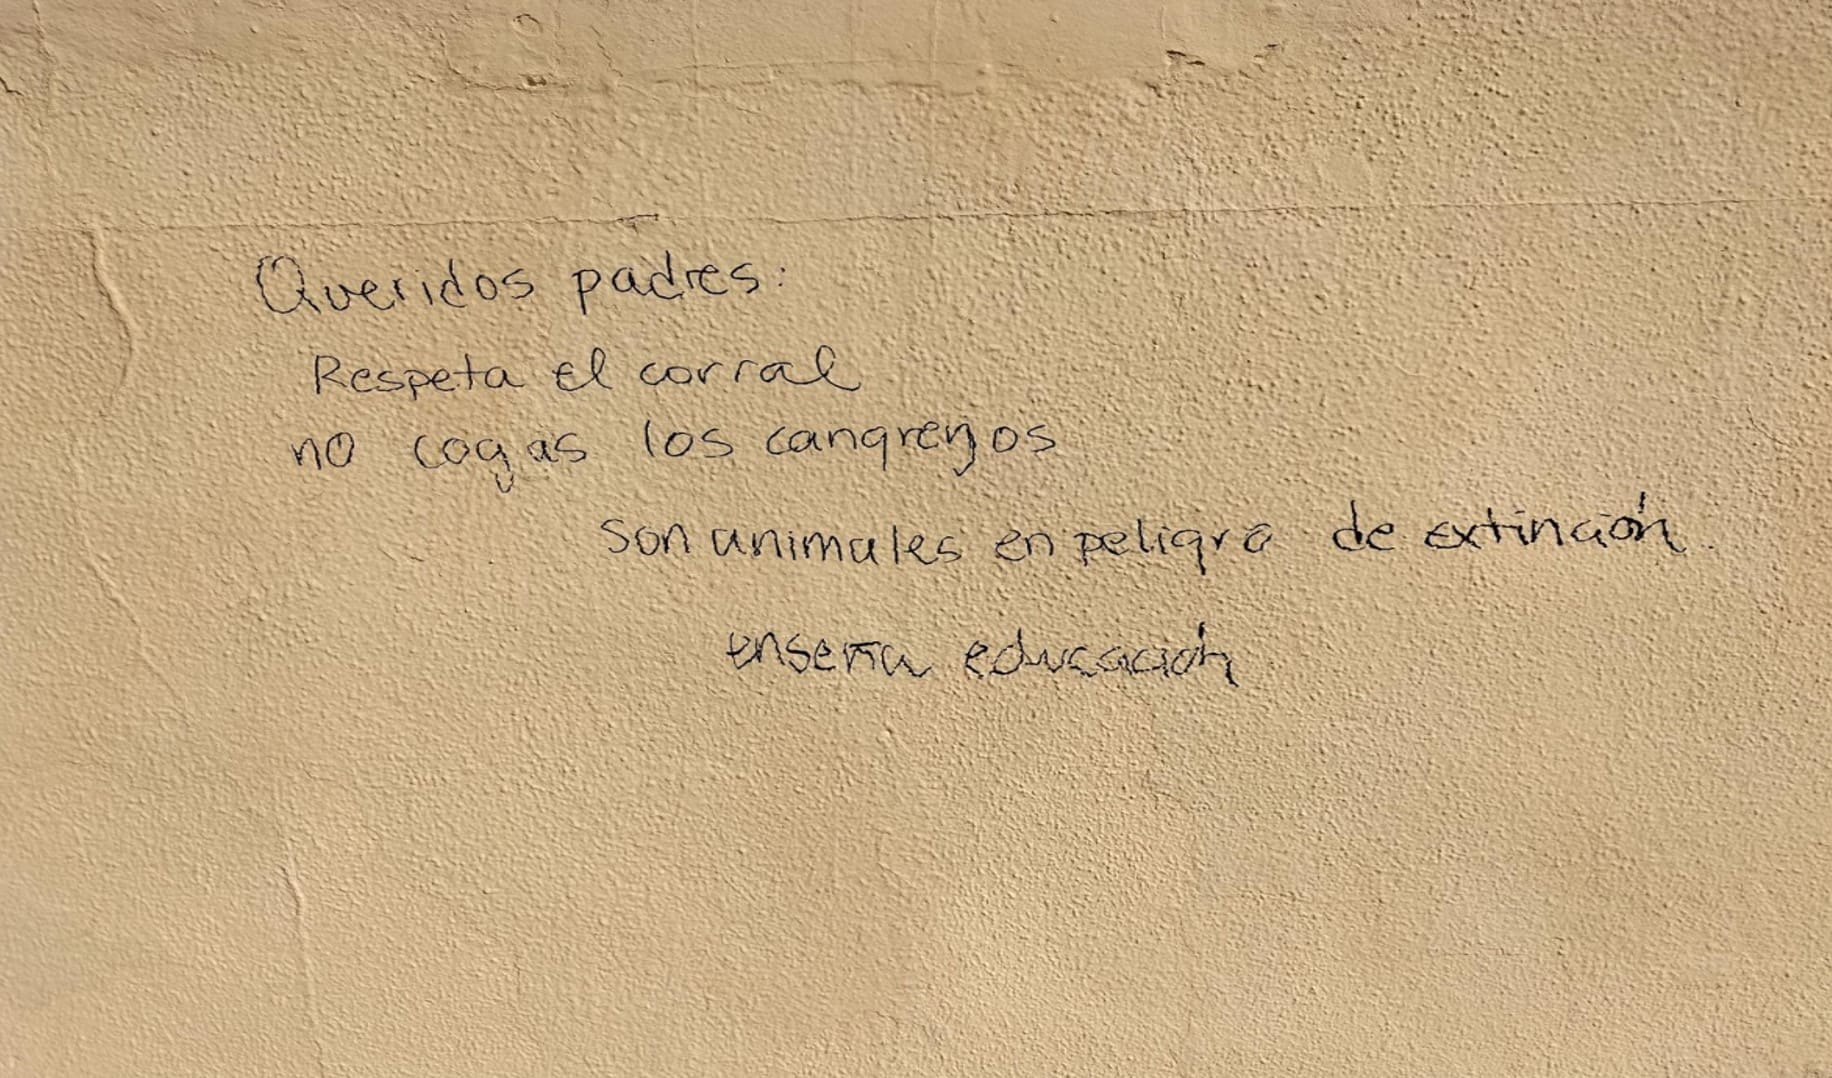 Queridos padres:
Respeta el corral
no cogas los cangrejos
son animales en peligro de extinción.
enseña educación